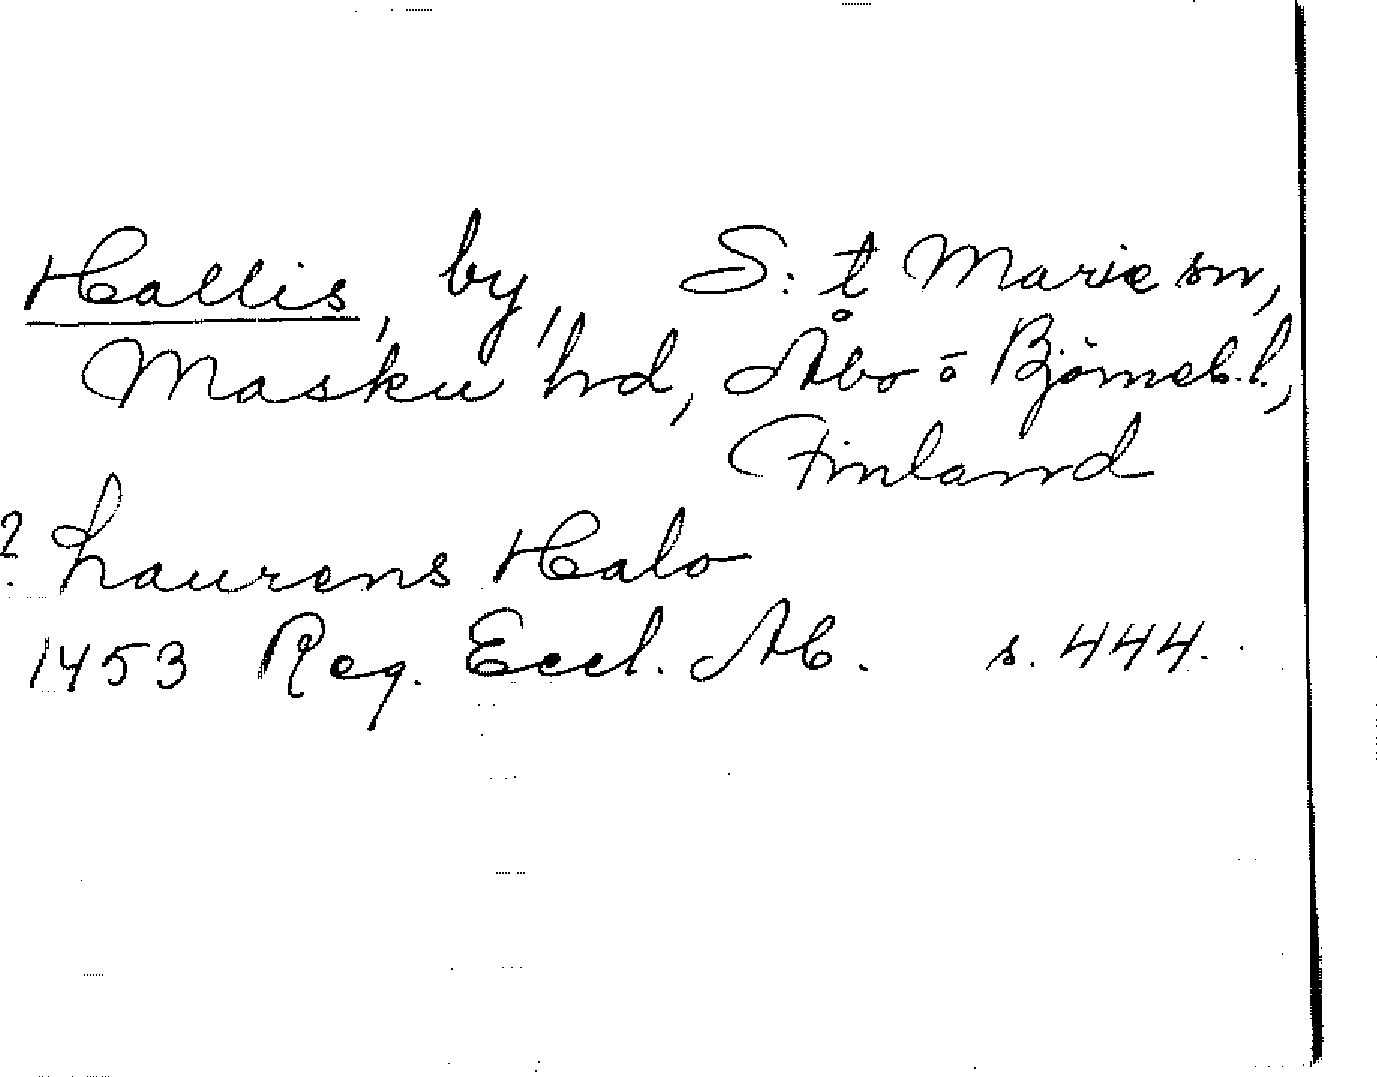 Hallis, by, S:t Marie sn,
Masku hd, Åbo o Björneb.l.,
Finland
? Laurens Halo
1453 Reg. Eccl. Ab. s. 444.